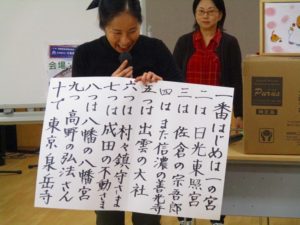 一番はじめは一の宮
二は日光東照宮
三は佐倉の宗吾郎
四はまた信濃の善光寺
五つは出雲の大社
六つは村々鎮守さま
七つは成田の不動さま
八つは八幡の八幡宮
九つ高野の弘法さん
十で東京泉岳寺
会場
Purus